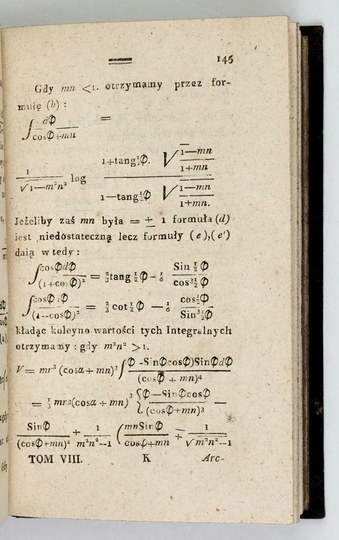 145
Gdy mn <1. otrzymamy przez for-
mułę (b) :
∫ dФ / cosФ+mn =
1 / √1—m²n² log (1+tang½Ф. √(1—mn / 1+mn)) / (1—tang½Ф √(1—mn / 1+mn.))
Jeżeliby zaś mn była = ± 1 formuła (d)
iest niedostateczną lecz formuły (e),(e')
daią wtedy :
∫ cosФdФ / (1+cosФ)² = ½tang ½Ф — ⅙ Sin ½Ф / cos³½Ф
∫ cosФdФ / (1—cosФ)² = ½ cot½Ф — ⅙ cos½Ф / Sin³½Ф
kładąc koleyno wartości tych Integralnych
otrzymamy : gdy m²n² >1.
V= mr³ (cosα + mn)³ ∫ (Ф—SinФcosФ)SinФdФ / (cosФ + mn)⁴
= ⅓ mr³(cosα+mn)³ { (Ф—SinФcosФ) / (cosФ+mn)³ —
SinФ / (cosФ+mn)² + 1 / m²n²—1 ( mnSinФ / cosФ+mn — 1 / √m²n²—1
TOM VIII. K Arc-